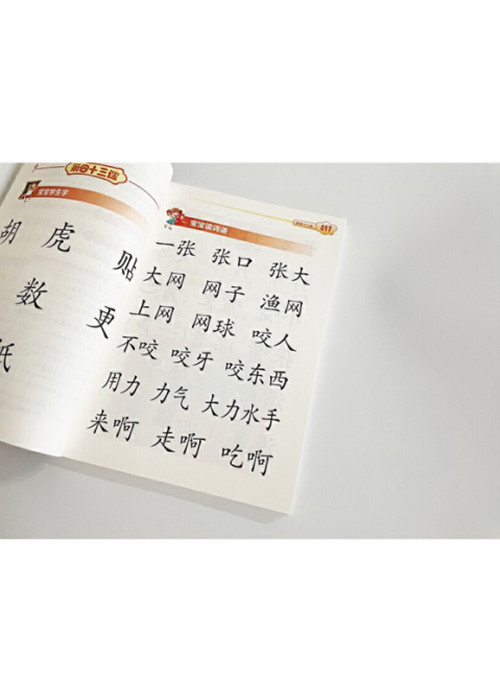 第四十三篇
宝宝学生字
胡 虎 贴
数 更
纸
宝宝读词语
一张 张口 张大
大网 网子 渔网
上网 网球 咬人
不咬 咬牙 咬东西
用力 力气 大力水手
来啊 走啊 吃啊